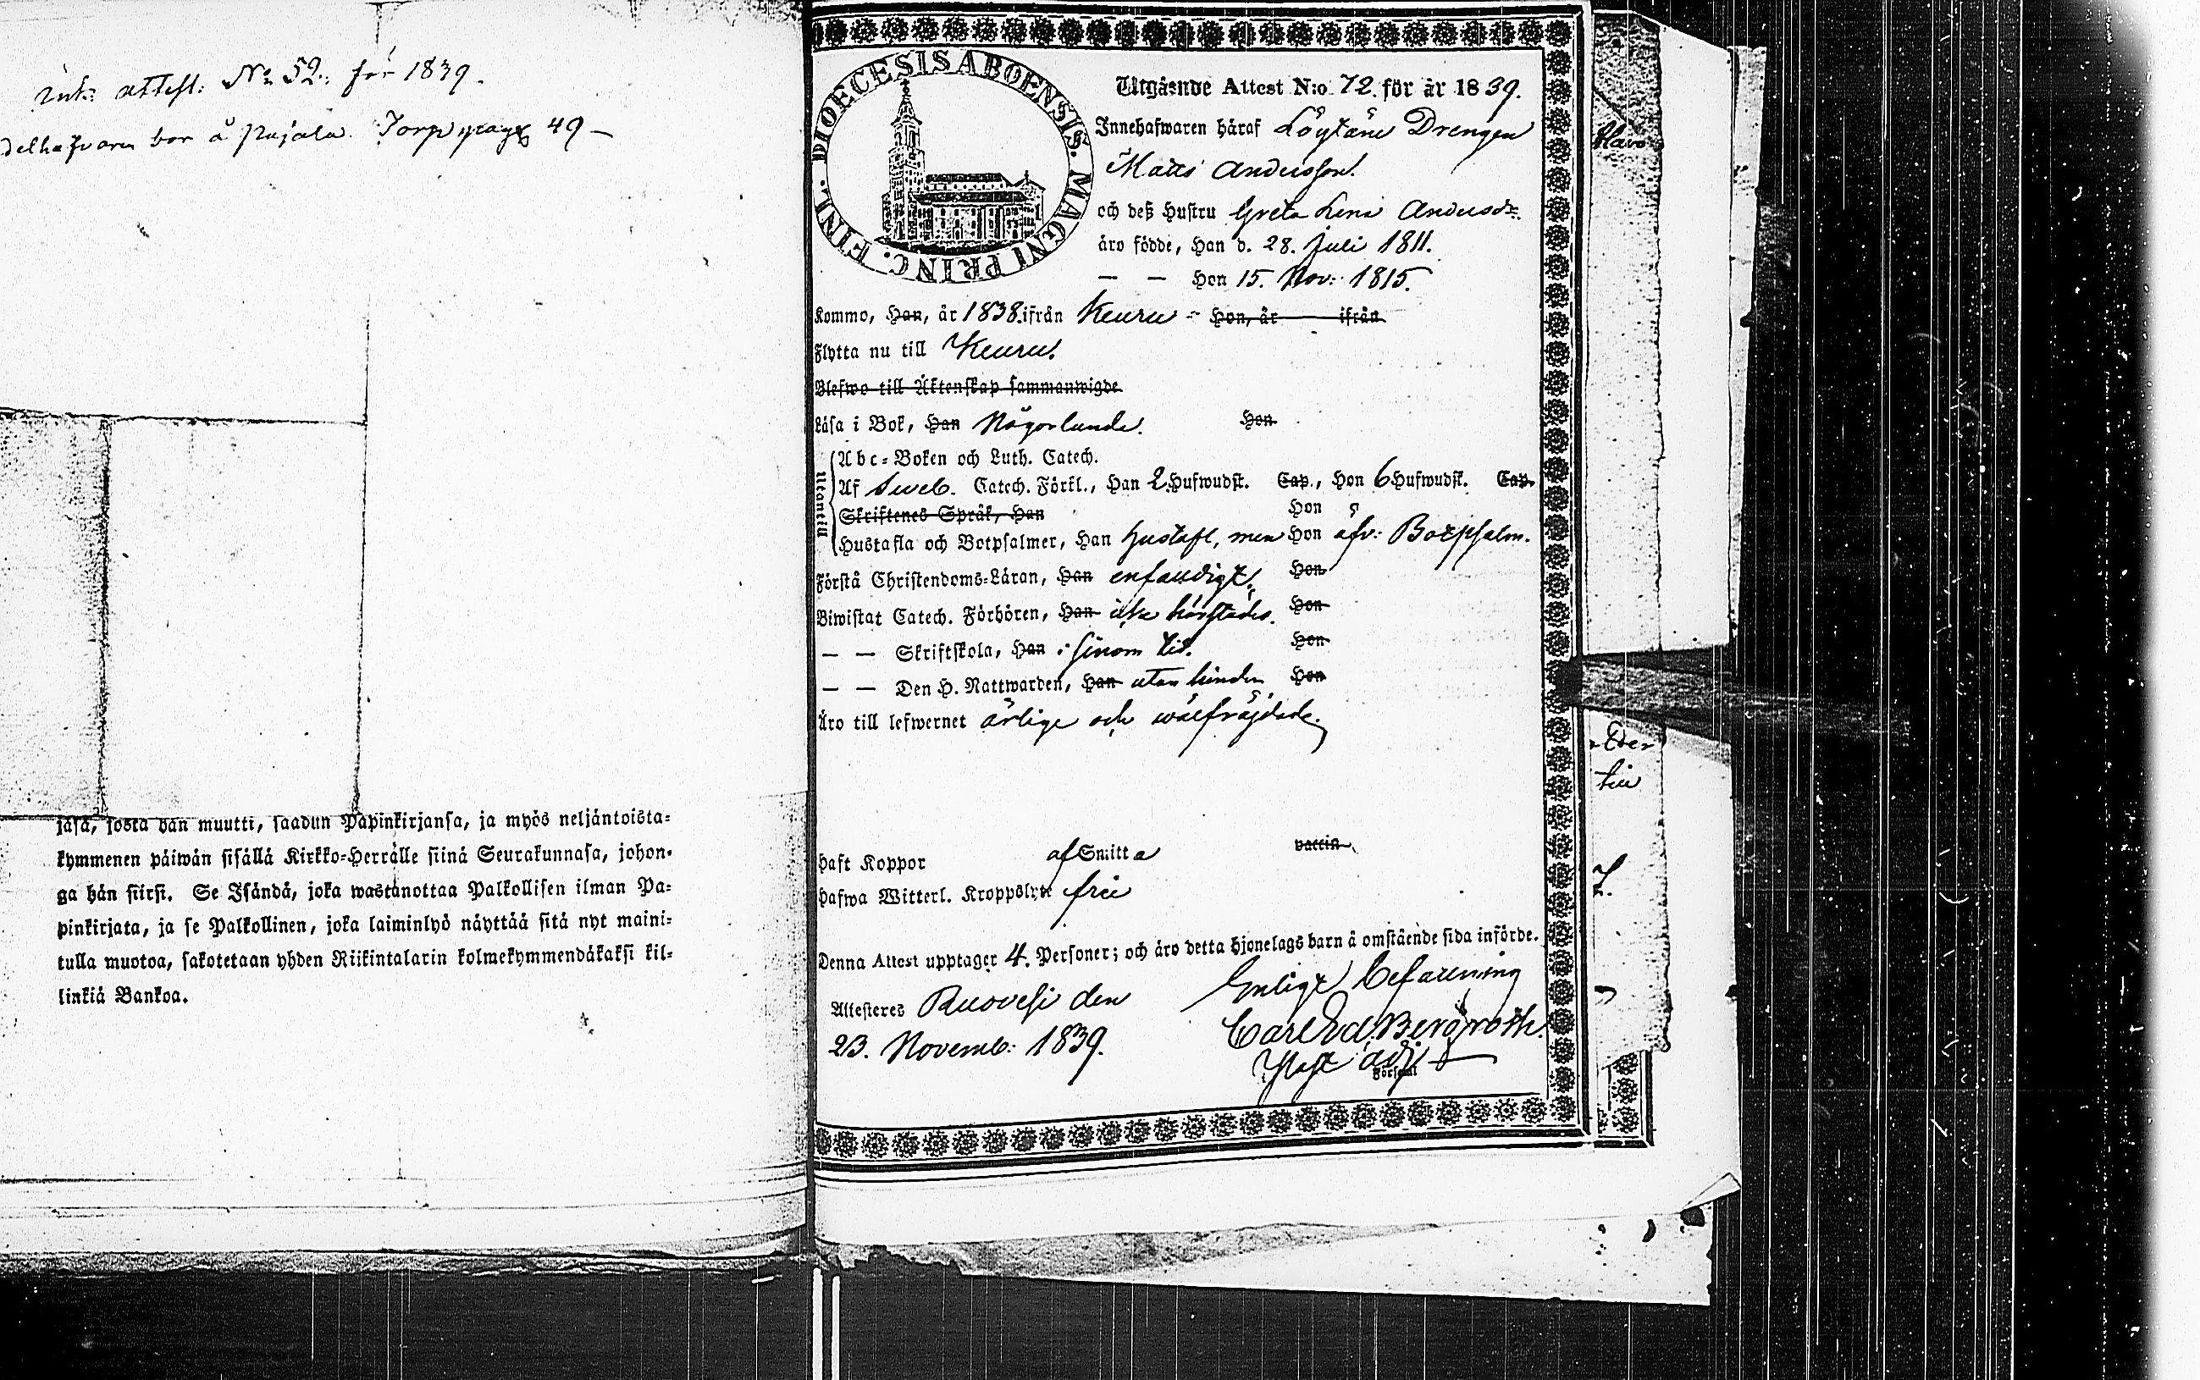 attest. No 52. för 1839.
bor å Pajala Torp pag 49 –
jasa, josta hän muutti, saadun Papinkirjansa, ja myös neljäntoista=
kymmenen päiwän sisällä Kirkko=Herrälle siinä Seurakunnasa, johon=
ga hän siirsi. Se Isändä, joka wastanottaa Palkollisen ilman Pa=
pinkirjata, ja se Palkollinen, joka laiminlyö näyttää sitä nyt maini=
tulla muotoa, sakotetaan yhden Riikintalarin kolmekymmendäkaksi kil=
linkiä Bankoa.
DIOECESIS ABOENSIS. MAGNI PRINC. FINL.
Utgående Attest N:o 72. för år 1839.
Innehafwaren häraf Löytäne Drengen
Matts Andersson.
och deß Hustru Greta Lena Andersdr.
äro födde, Han d. 28. Juli 1811.
— — Hon 15. Nov: 1815.
Kommo, Han, år 1838. ifrån Keuru - Hon, år ifrån
Flytta nu till Keuru.
Blefwo till Äktenskap sammanwigde
Läsa i Bok, Han Någorlunda. Hon
Utantill
Abc=Boken och Luth. Catech.
Af Sweb. Catech. Förkl., Han 2 Hufwudst. Cap., Hon 6 Hufwudst. Cap.
Skriftenes Språk, Han Hon
Hustafla och Botpsalmer, Han Hustafl, men Hon äfv: Botpsalm.
Förstå Christendoms=Läran, Han enfaldigt. Hon
Biwistat Catech. Förhören, Han icke härstädes. Hon
— — Skriftskola, Han i sinom tid. Hon
— — Den H. Nattwarden, Han utan hinder Hon
Äro till lefwernet ärlige och wälfräjdade.
Haft Koppor af Smitta vaccin
Hafwa Witterl. Kroppslyte frie
Denna Attest upptager 4. Personer; och äro detta hjonelags barn å omstående sida införde.
Attesteres Ruovesi den
23. Novemb: 1839.
Enligt befarening
Carl Ed. Bergroth.
Past. adj.
Församl